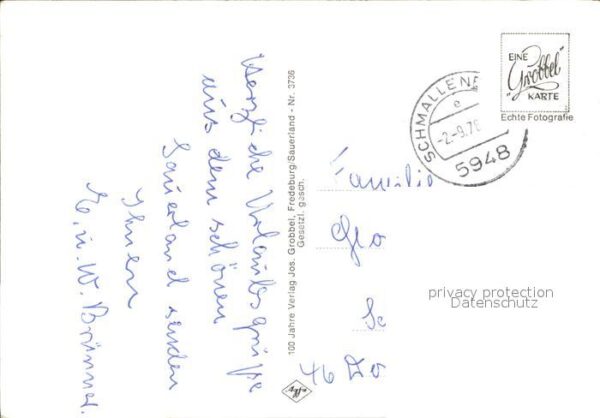 Herzliche Urlaubsgrüße
aus dem schönen
Sauerland senden
Ihnen
E. u. W. Brümmer.
100 Jahre Verlag Jos. Grobbel, Fredeburg/Sauerland - Nr. 3736
Gesetzl. gesch.
Agfa
EINE
"Grobbel"
KARTE
Echte Fotografie
SCHMALLENB
e
-2.-9.78
5948
Familie
Glo
Se
46 Do
privacy protection
Datenschutz